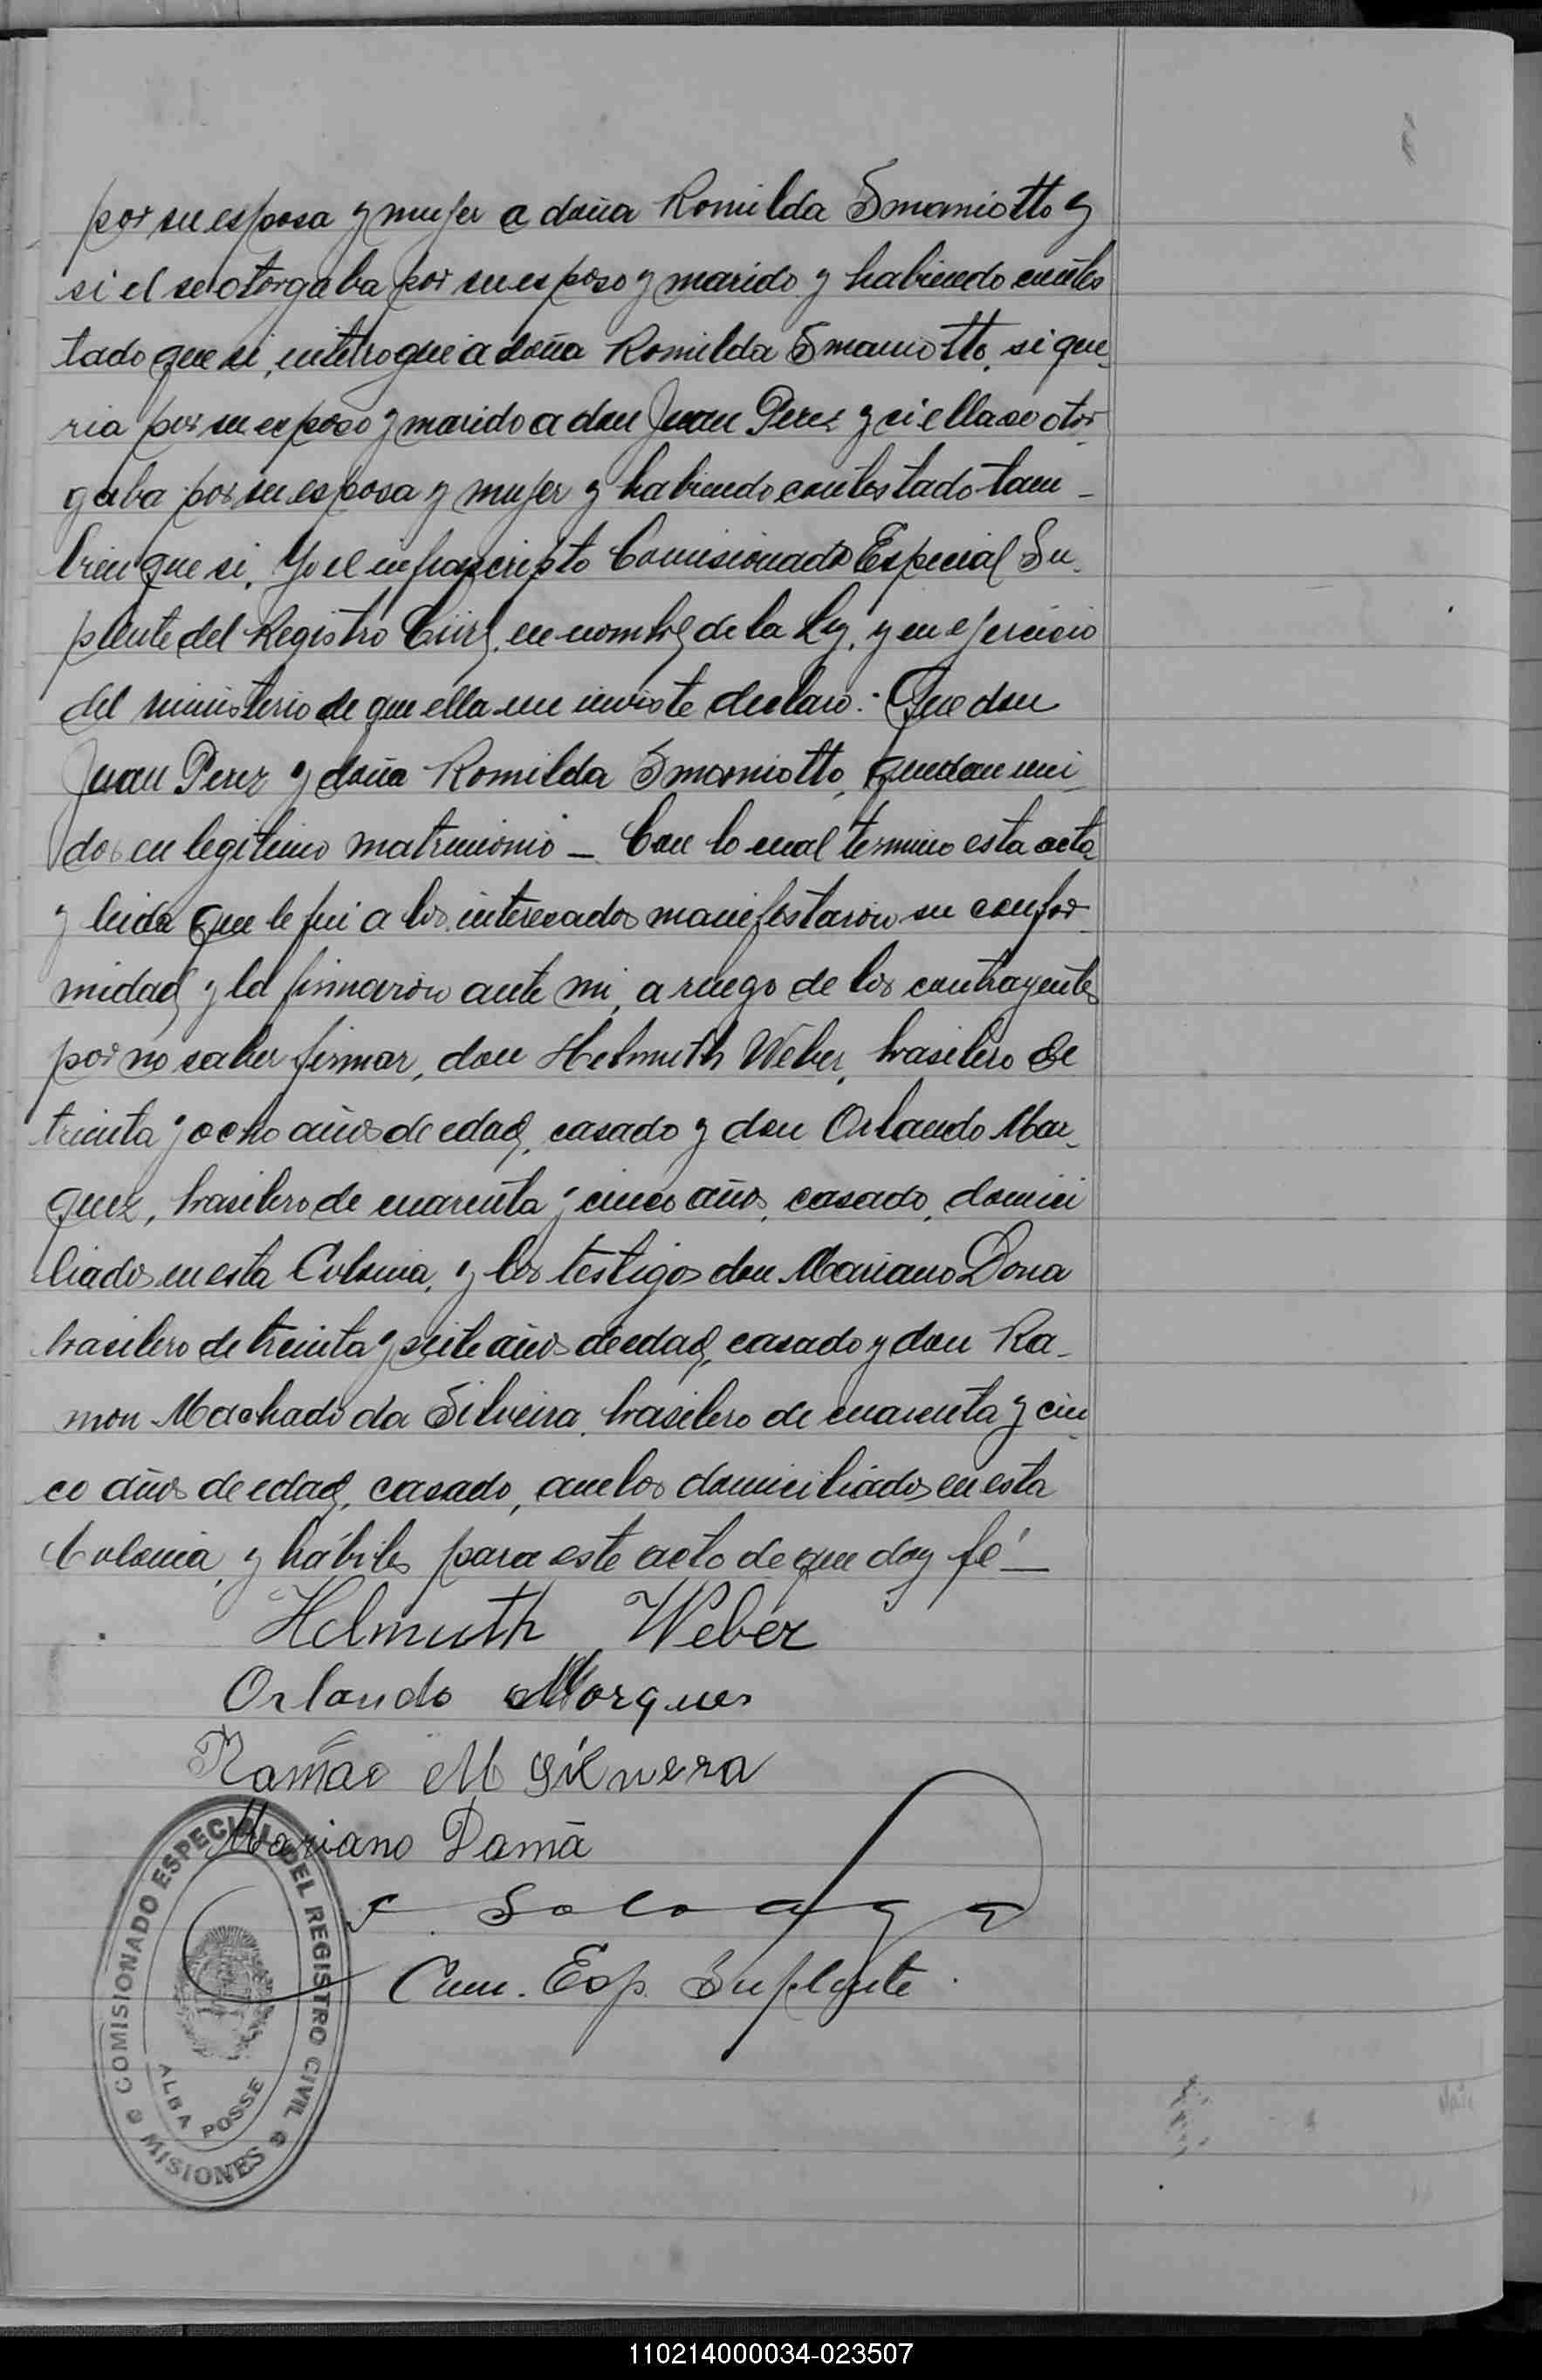 por su esposa y mujer a doña Romilda Smaniotto y
si el se otorgaba por su esposo y marido y habiendo contes
tado que si, interrogué a doña Romilda Smaniotto, si que
ria por su esposo y marido a don Juan Perez y si ella se otor
gaba por su esposa y mujer y habiendo contestado tam-
bien que si. Yo el infrascripto Comisionado Especial Su-
plente del Registro Civil, en nombre de la Ley, y en ejercicio
del ministerio de que ella me inviste declaro:- Que don
Juan Perez y doña Romilda Smaniotto, quedan uni-
dos en legitimo matrimonio - Con lo cual termino esta acta
y leida que le fui a los interesados manifestaron su confor-
midad y la firmaron ante mi, a ruego de los contrayentes
por no saber firmar, don Helmuth Weber, brasilero de
treinta y ocho años de edad, casado y don Orlando Mar-
quez, brasilero de cuarenta y cinco años, casado, domici
liados en esta Colonia, y los testigos don Mariano Dona
brasilero de treinta y siete años de edad, casado y don Ra-
mon Machado da Silveira, brasilero de cuarenta y cin
co años de edad, casado, ambos domiciliados en esta
Colonia, y hábiles para este acto de que doy fé -
Helmuth Weber
Orlando Marques
Ramão M Silveira
Mariano Damã
Sologa
Com. Esp. Suplente.
COMISIONADO ESPECIAL DEL REGISTRO CIVIL
ALBA POSSE
MISIONES
110214000034-023507